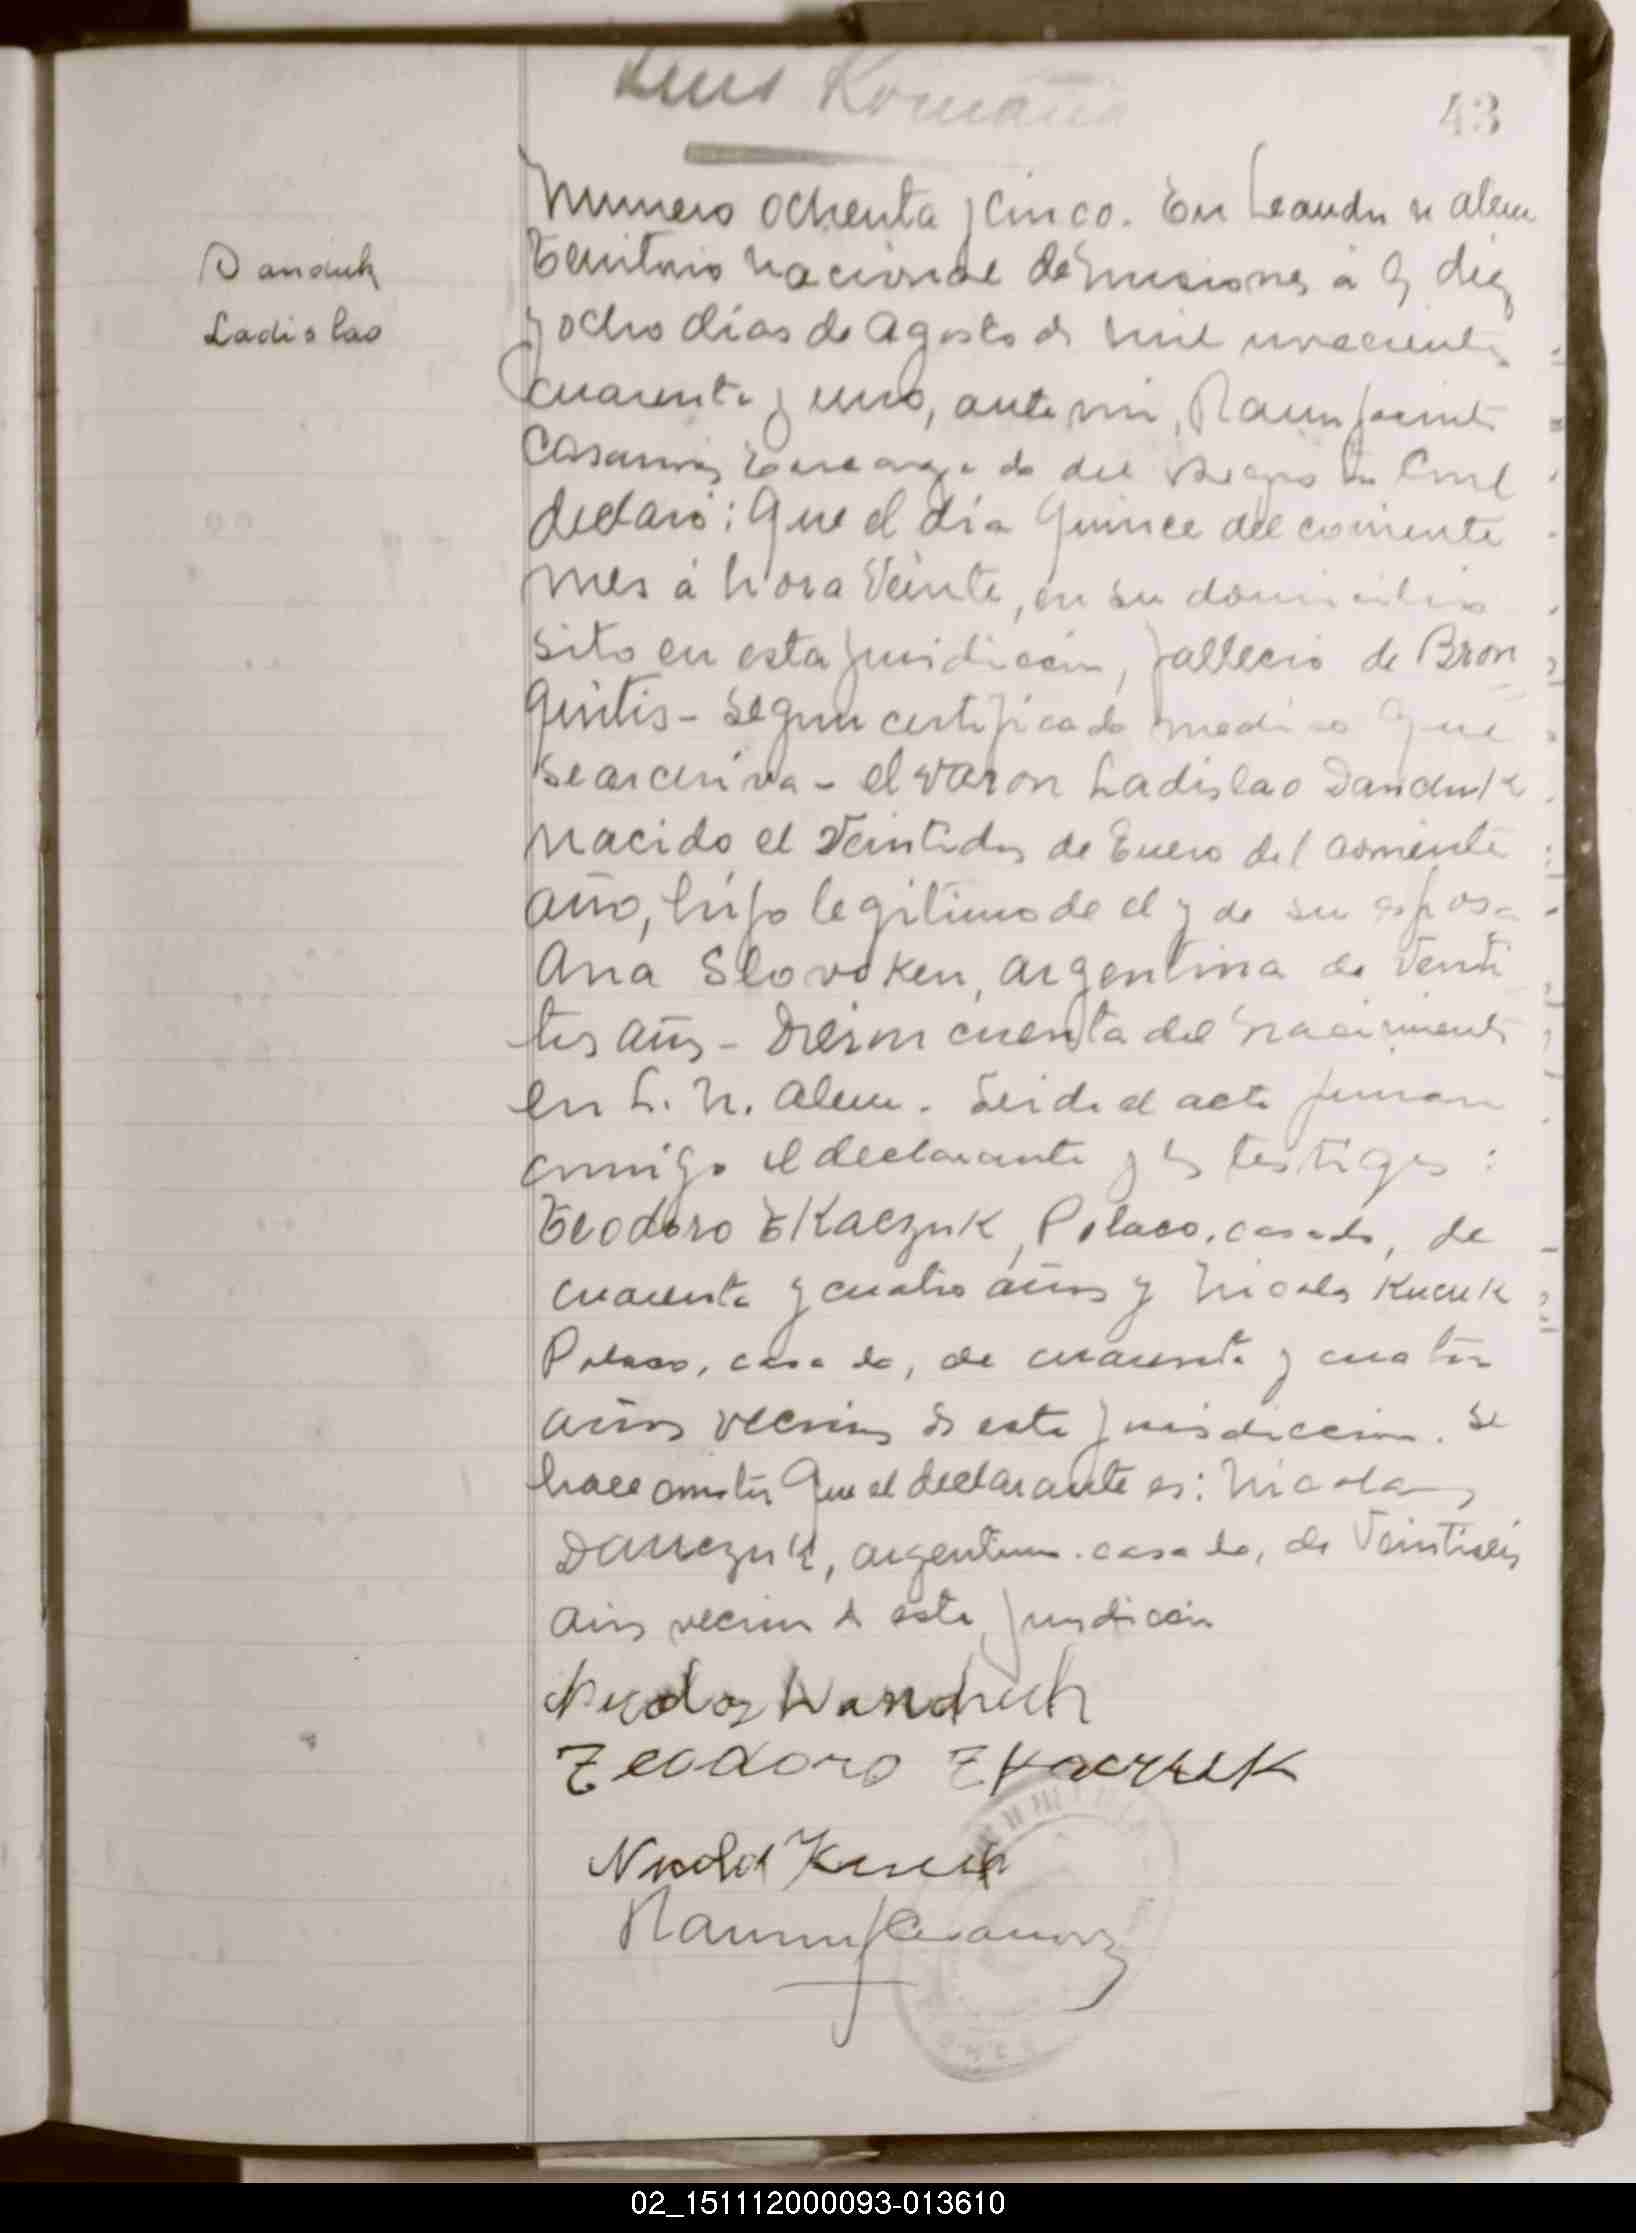 Luis Romaña
43
Danduk
Ladislao
Numero ochenta y cinco. En Leandro n alem
Territorio nacional de Misiones á los diez
y ocho dias de Agosto de mil novecientos
cuarenta y uno, ante mi, Ramn Jacinto
Casanova Encargado del Registro Civil
declaró: Que el día Quince del corriente
mes á hora Veinte, en su domicilio
sito en esta juridiccion, fallecio de Bron
quitis - Segun certificado medico que
se archiva - el varon Ladislao Danduk
nacido el Veintidos de Enero del corriente
año, hijo legitimo de el y de su esposa
Ana Slovoken, argentina de Veinti
tres años - Dieron cuenta del nacimiento
en L. N. Alem. Leida el acta firman
conmigo el declarante y los testigos:
Teodoro Tkaczuk, Polaco, casado, de
cuarenta y cuatro años y Nicolas Kucuk
Polaco, casado, de cuarenta y cuatro
años vecinos de esta jurisdiccion. Se
hace constar Que el declarante es: Nicolas
Danczuk, argentino. casado, de Veintiseis
años vecino de esta juridiccion
Teodoro Tkaczuk
Ramn J Casanova
02_151112000093-013610